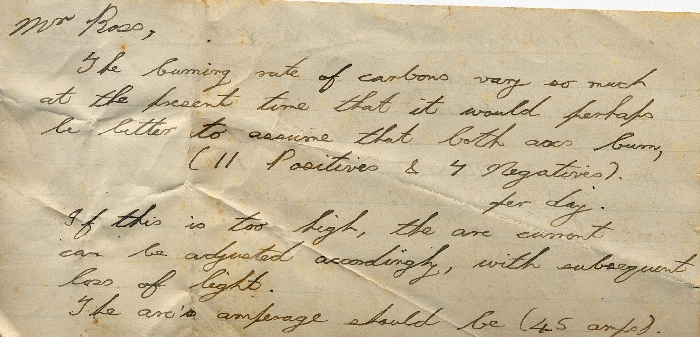 Mr Ross,
The burning rate of carbons vary so much
at the present time that it would perhaps
be better to assume that both arcs burn,
(11 Positives & 7 Negatives).
per day.
If this is too high, the arc current
can be adjusted accordingly, with subsequent
loss of light.
The arc's amperage should be (45 amps).